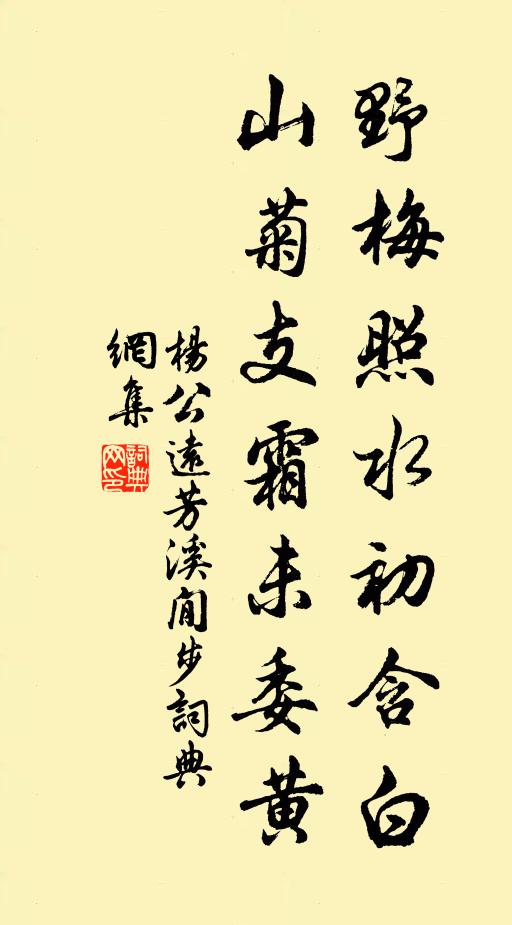 野梅照水初含白
山菊支霜未委黃
楊公遠芳溪閒步詞典
網集
詞典
网印